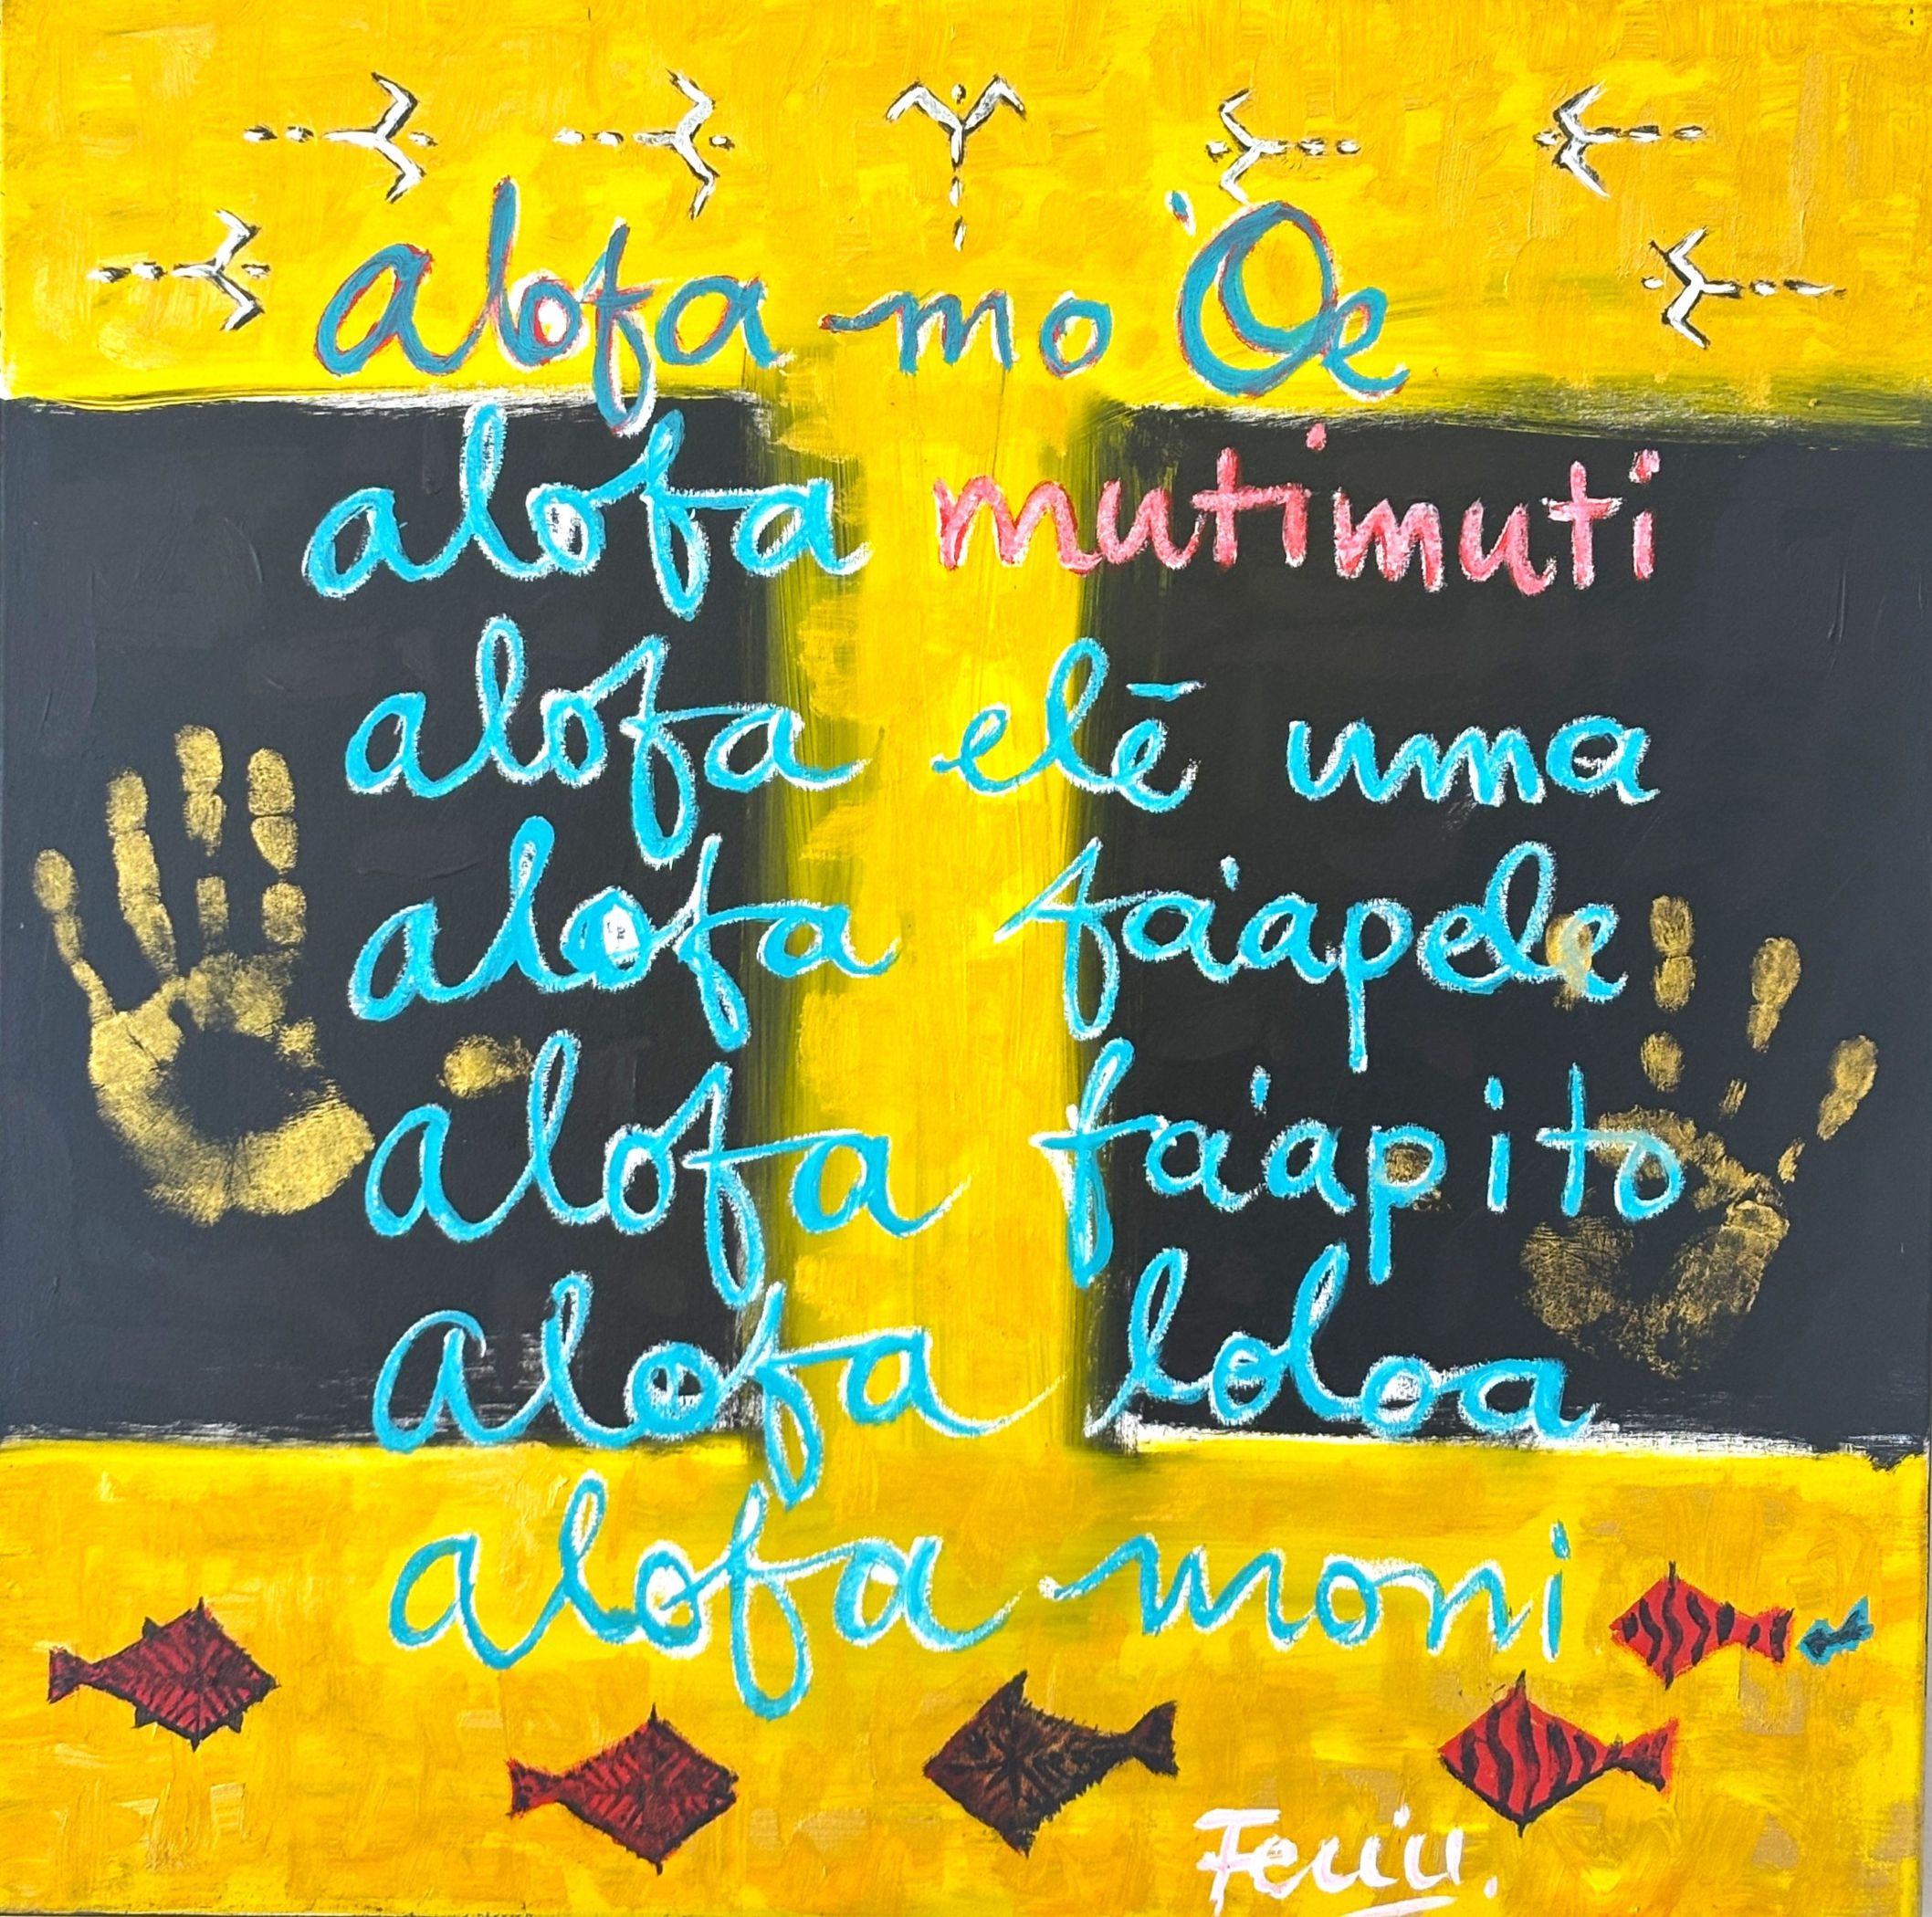 alofa mo 'Oe
alofa mutimuti
alofa elē uma
alofa fa'apele
alofa fa'apito
alofa loloa
alofa moni
Feu'u.